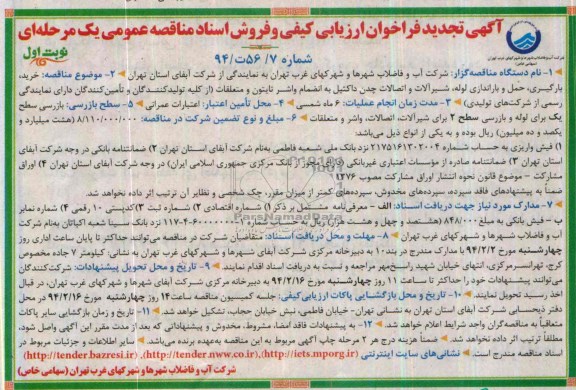 آگهی تجدید فراخوان ارزیابی کیفی و فروش اسناد مناقصه عمومی یک مرحله‌ای
شماره ۷/ ۵۶ت/۹۴
نوبت اول
شرکت آب و فاضلاب شهرها و شهرکهای غرب تهران
(سهامی خاص)
۱- نام دستگاه مناقصه‌گزار: شرکت آب و فاضلاب شهرها و شهرکهای غرب تهران به نمایندگی از شرکت آبفای استان تهران ۲- موضوع مناقصه: خرید،
بارگیری، حمل و باراندازی لوله، شیرآلات و اتصالات چدن داکتیل به انضمام واشر تایتون و متعلقات (از کلیه تولیدکنندگان و تأمین‌کنندگان دارای نمایندگی
رسمی از شرکت‌های تولیدی) ۳- مدت زمان انجام عملیات: ۶ ماه شمسی ۴- محل تأمین اعتبار: اعتبارات عمرانی ۵- سطح بازرسی: بازرسی سطح
یک برای لوله و بازرسی سطح ۲ برای شیرآلات، اتصالات، واشر و متعلقات ۶- مبلغ و نوع تضمین شرکت در مناقصه: ۸/۱۱۰/۰۰۰/۰۰۰ (هشت میلیارد و
یکصد و ده میلیون) ریال بوده و به یکی از انواع ذیل می‌باشد:
۱) فیش واریزی به حساب شماره ۲۱۷۵۱۶۱۳۰۲۰۰۴ نزد بانک ملی شعبه فاطمی به‌نام شرکت آبفای استان تهران ۲) ضمانتنامه بانکی در وجه شرکت آبفای
استان تهران ۳) ضمانتنامه صادره از مؤسسات اعتباری غیربانکی (دارای مجوز از بانک مرکزی جمهوری اسلامی ایران) در وجه شرکت آبفای استان تهران ۴) اوراق
مشارکت - موضوع قانون نحوه انتشار اوراق مشارکت مصوب ۱۳۷۶
ضمناً به پیشنهادهای فاقد سپرده، سپرده‌های مخدوش، سپرده‌های کمتر از میزان مقرر، چک شخصی و نظایر آن ترتیب اثر داده نخواهد شد.
۷- مدارک مورد نیاز جهت دریافت اسناد: الف - معرفی‌نامه مشتمل بر ذکر ۱) شماره اقتصادی ۲) شماره ثبت ۳) کدپستی ۱۰ رقمی ۴) شماره نمابر
ب - فیش بانکی به مبلغ ۸۴۸/۰۰۰ (هشتصد و چهل و هشت هزار) ریال به حساب شماره نزد بانک سینا شعبه اکباتان به‌نام شرکت
آب و فاضلاب شهرها و شهرکهای غرب تهران ۸- مهلت و محل دریافت اسناد: متقاضیان شرکت در مناقصه می‌توانند حداکثر تا پایان ساعت اداری روز
چهارشنبه مورخ ۹۴/۲/۲ با مدارک مندرج در بند ۱۰ به دبیرخانه مرکزی شرکت آبفای شهرها و شهرکهای غرب تهران به نشانی: کیلومتر ۷ جاده مخصوص
کرج، تهرانسر مرکزی، انتهای خیابان شهید راسخ‌مهر مراجعه و نسبت به دریافت اسناد اقدام نمایند. ۹- تاریخ و محل تحویل پیشنهادات: شرکت‌کنندگان
می‌توانند پیشنهادات خود را حداکثر تا ساعت ۱۱ روز چهارشنبه مورخ ۹۴/۲/۱۶ به دبیرخانه مرکزی شرکت آبفای شهرها و شهرکهای غرب تهران، در قبال
اخذ رسید تحویل نمایند. ۱۰- تاریخ و محل بازگشایی پاکات ارزیابی کیفی: جلسه کمیسیون مناقصه ساعت ۱۴ روز چهارشنبه مورخ ۹۴/۲/۱۶ در محل
دفتر ذیحسابی شرکت آبفای استان تهران به نشانی تهران- خیابان فاطمی، نبش خیابان حجاب، تشکیل خواهد شد. ۱۱- تاریخ و زمان بازگشایی سایر پاکات
متعاقباً به مناقصه‌گران واجد شرایط اعلام خواهد شد. ۱۲- به پیشنهادات فاقد امضا، مشروط، مخدوش و پیشنهاداتی که بعد از مدت مقرر این آگهی واصل شود،
مطلقاً ترتیب اثر داده نخواهد شد. ضمناً هزینه درج هر ۲ مرحله چاپ آگهی مربوط به این مناقصه به‌عهده برنده می‌باشد. سایر اطلاعات و جزئیات مربوط در
اسناد مناقصه مندرج است. نشانی‌های سایت اینترنتی (http://iets.mporg.ir)، (http://tender.nww.co.ir)، (http://tender.bazresi.ir)
شرکت آب و فاضلاب شهرها و شهرکهای غرب تهران (سهامی خاص)
ParsNamadData